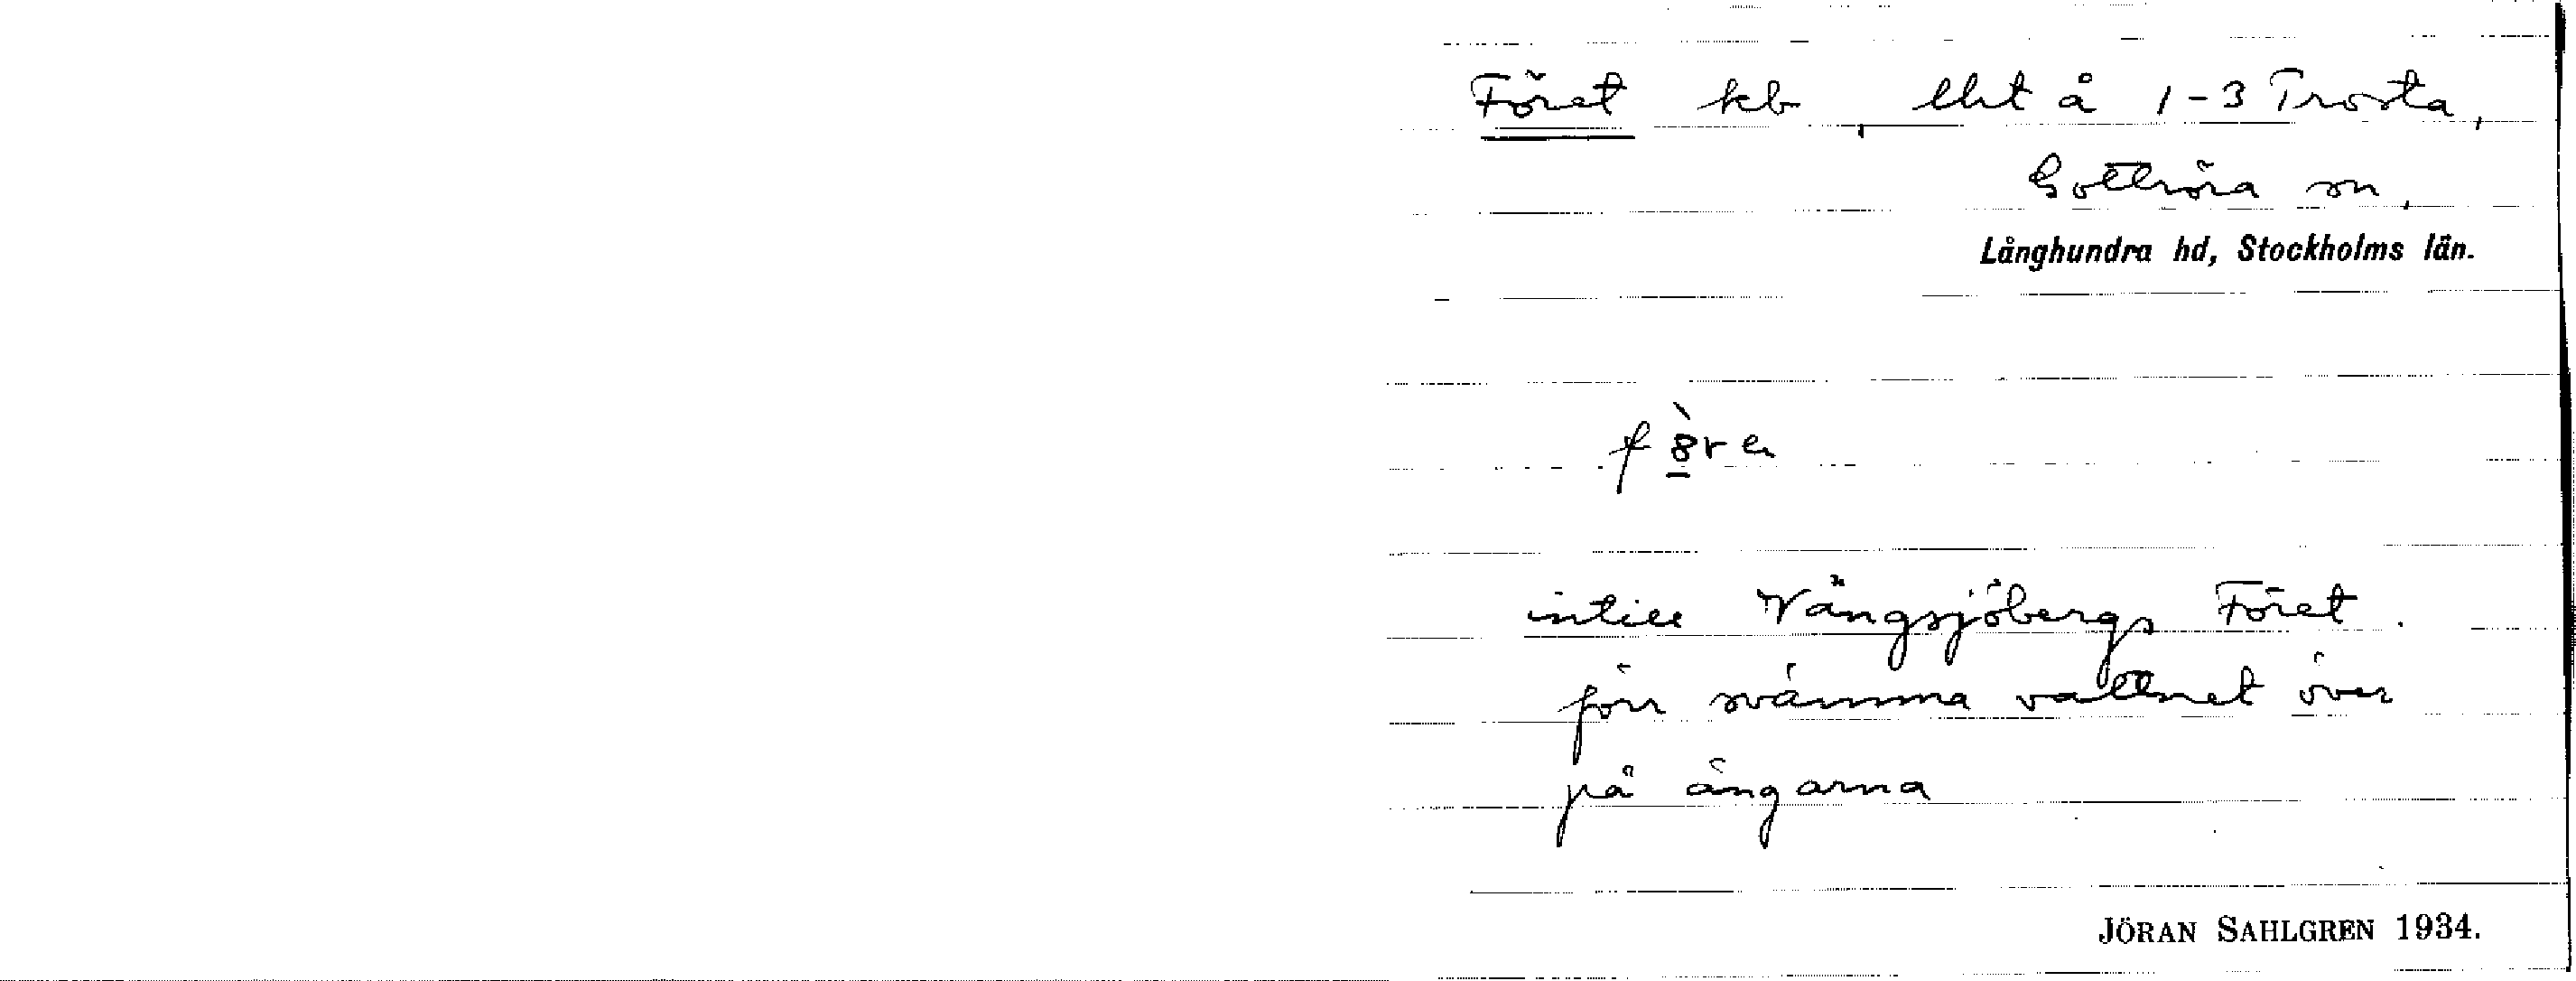 Föret kb, lht å 1-3 Trosta,
Gottröra sn,
Långhundra hd, Stockholms län.
f 8̲̀r e
intill Vängsjöbergs Föret.
förr svämma vattnet över
på ängarna
JÖRAN SAHLGREN 1934.